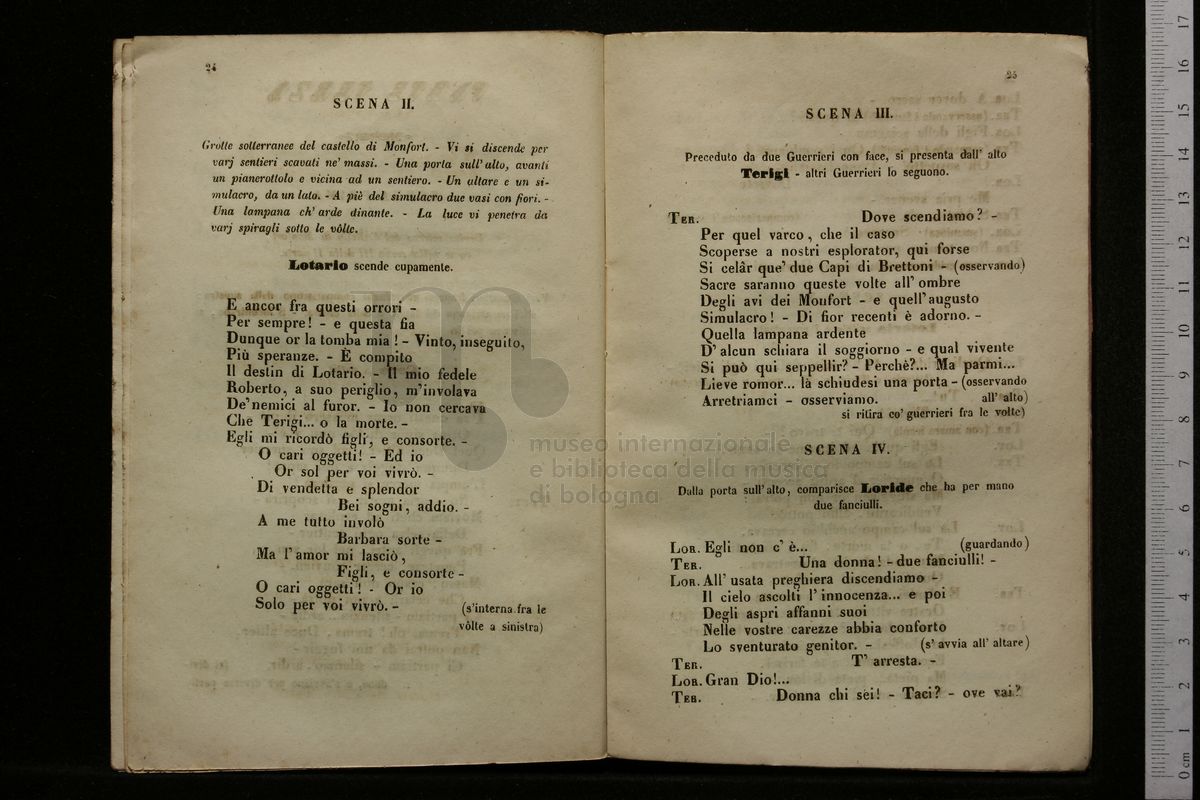 24
SCENA II.
Grotte sotterranee del castello di Monfort. - Vi si discende per
varj sentieri scavati ne' massi. - Una porta sull'alto, avanti
un pianerottolo e vicina ad un sentiero. - Un altare e un si-
mulacro, da un lato. - A piè del simulacro due vasi con fiori. -
Una lampana ch'arde dinante. - La luce vi penetra da
varj spiragli sotto le vôlte.
Lotario scende cupamente.
E ancor fra questi orrori -
Per sempre! - e questa fia
Dunque or la tomba mia! - Vinto, inseguito,
Più speranze. - È compito
Il destin di Lotario. - Il mio fedele
Roberto, a suo periglio, m'involava
De' nemici al furor. - Io non cercava
Che Terigi... o la morte. -
Egli mi ricordò figli, e consorte. -
O cari oggetti! - Ed io
Or sol per voi vivrò. -
Di vendetta e splendor
Bei sogni, addio. -
A me tutto involò
Barbara sorte -
Ma l'amor mi lasciò,
Figli, e consorte -
O cari oggetti! - Or io
Solo per voi vivrò. - (s'interna fra le
vôlte a sinistra)
25
SCENA III.
Preceduto da due Guerrieri con face, si presenta dall' alto
Terigi - altri Guerrieri lo seguono.
TER. Dove scendiamo? -
Per quel varco, che il caso
Scoperse a nostri esplorator, qui forse
Si celâr que' due Capi di Brettoni - (osservando)
Sacre saranno queste volte all' ombre
Degli avi dei Monfort - e quell'augusto
Simulacro! - Di fior recenti è adorno. -
Quella lampana ardente
D' alcun schiara il soggiorno - e qual vivente
Si può qui seppellir? - Perchè?... Ma parmi...
Lieve romor... là schiudesi una porta - (osservando
Arretriamci - osserviamo. all' alto)
si ritira co' guerrieri fra le volte)
SCENA IV.
Dalla porta sull'alto, comparisce Loride che ha per mano
due fanciulli.
LOR. Egli non c' è... (guardando)
TER. Una donna! - due fanciulli! -
LOR. All' usata preghiera discendiamo -
Il cielo ascolti l'innocenza... e poi
Degli aspri affanni suoi
Nelle vostre carezze abbia conforto
Lo sventurato genitor. - (s' avvia all' altare)
TER. T' arresta. -
LOR. Gran Dio!...
TER. Donna chi sei! - Taci? - ove vai?
museo internazionale
e biblioteca della musica
di bologna